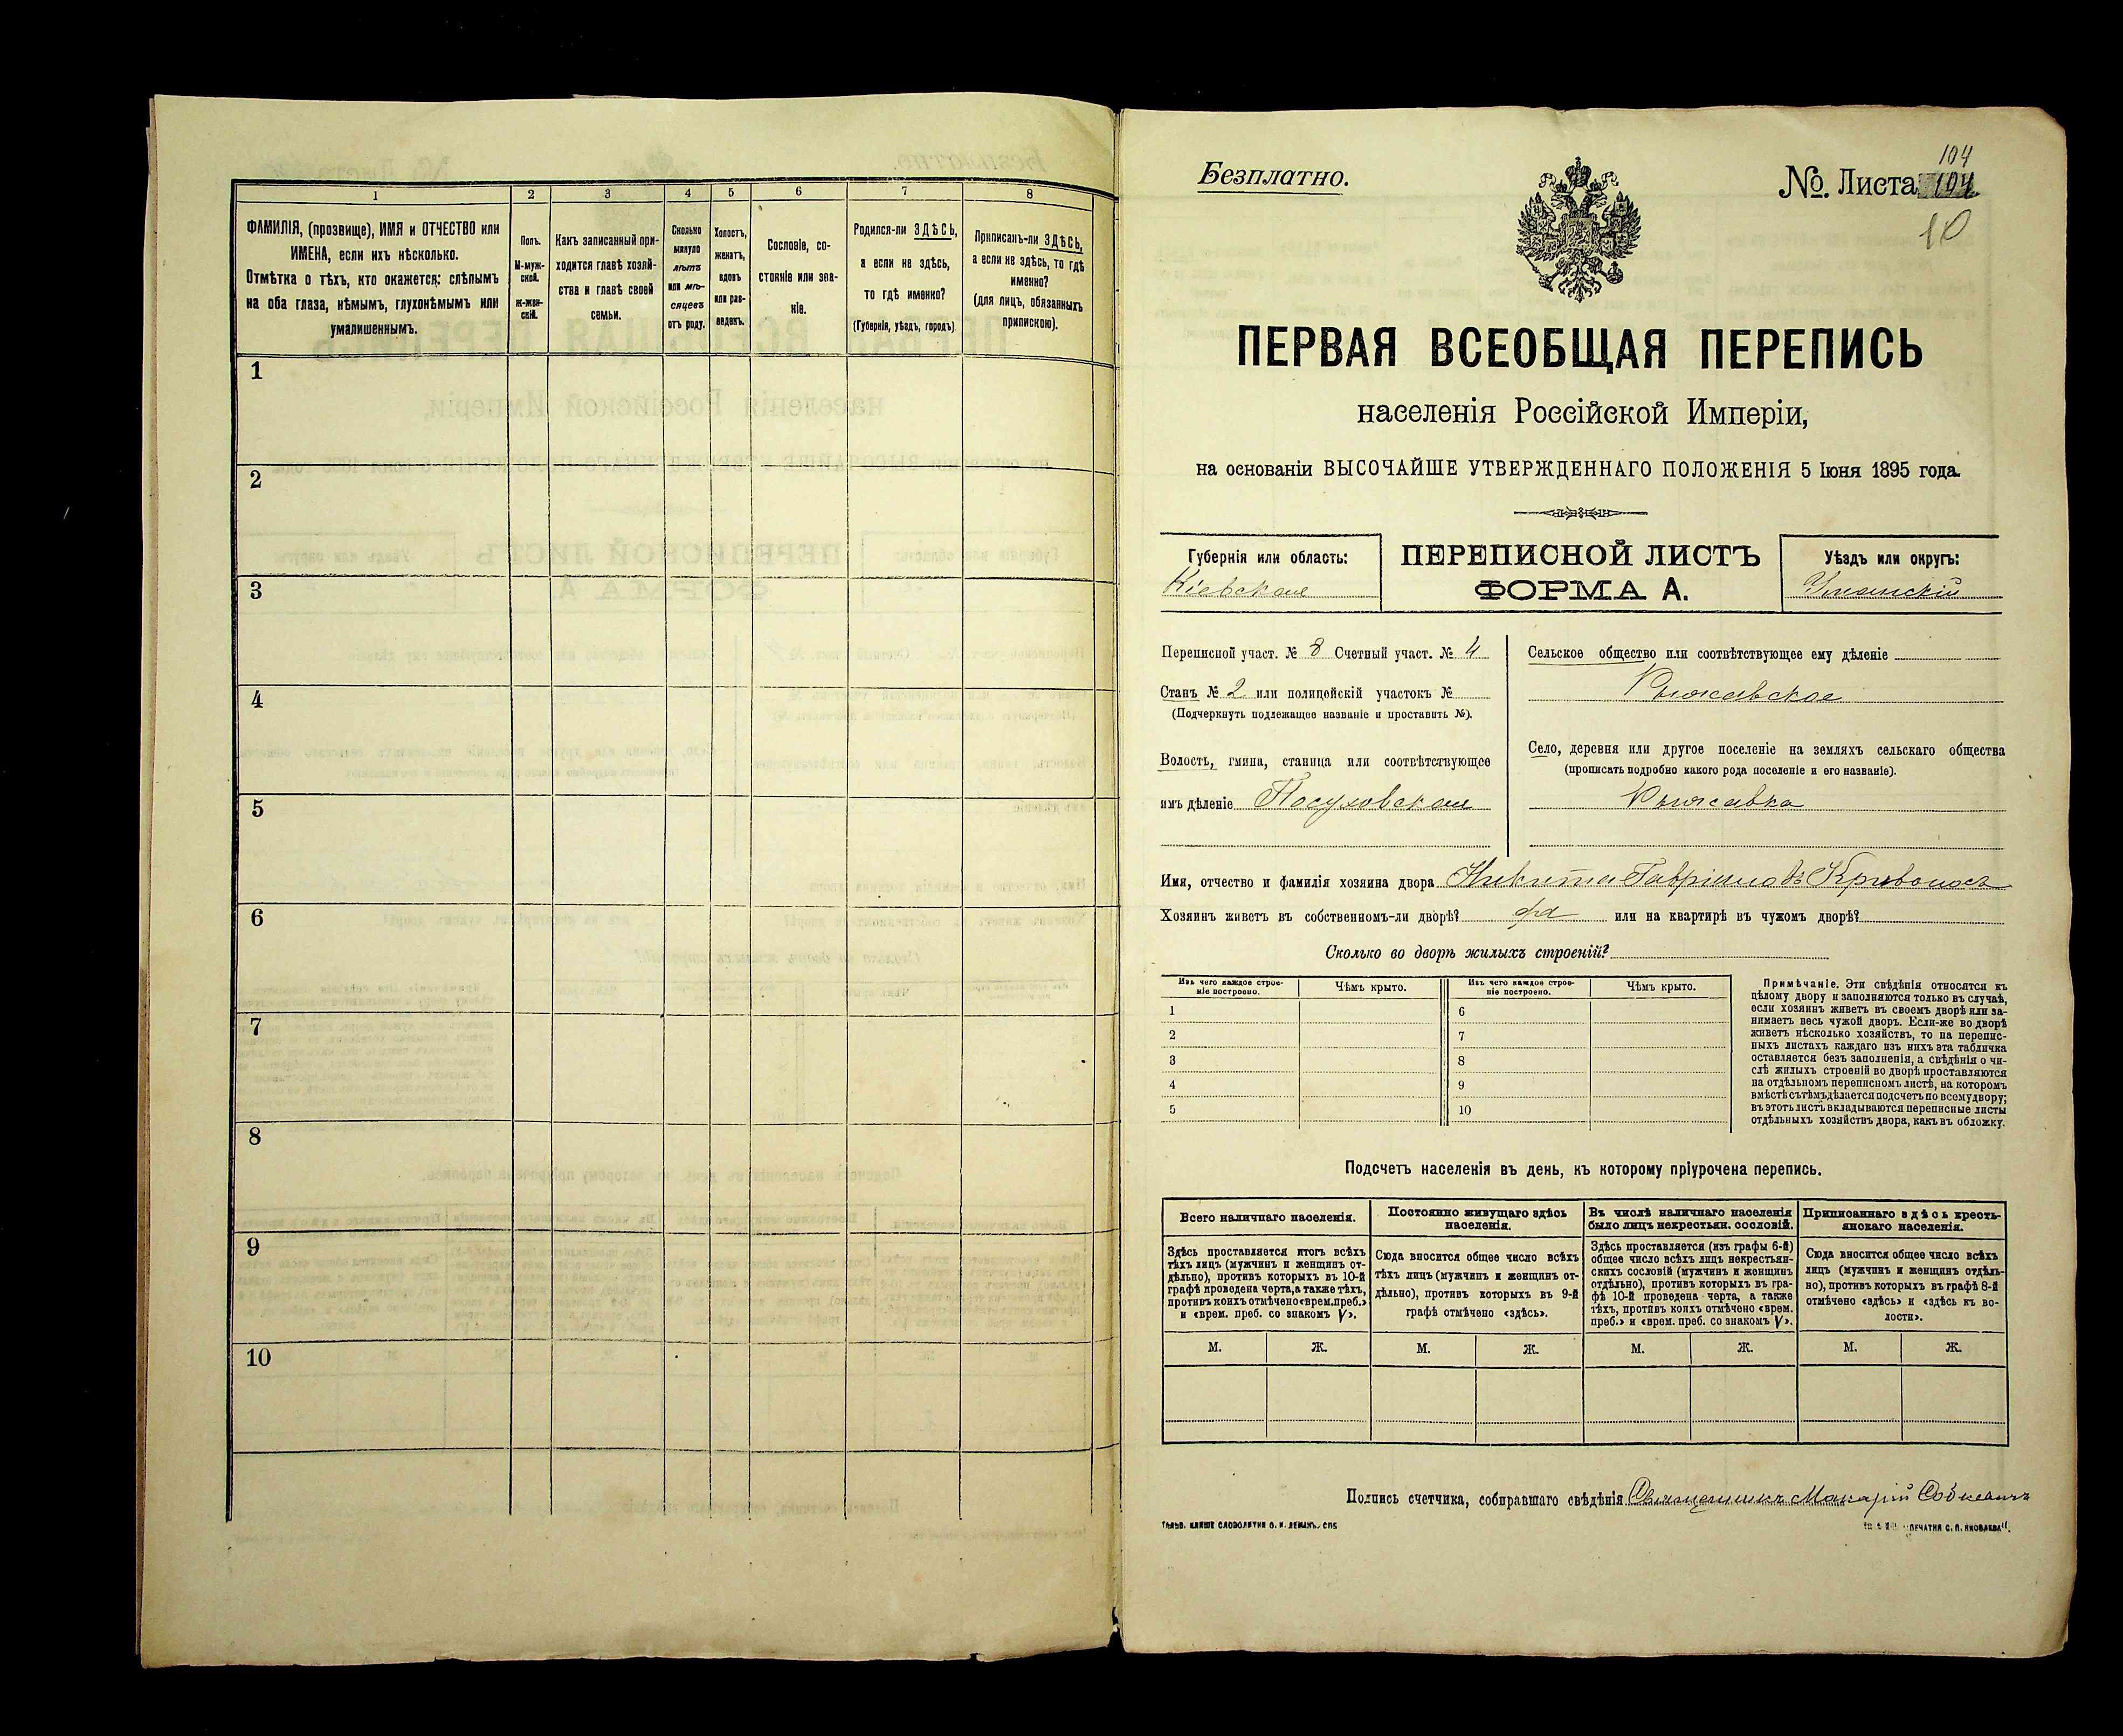 1 2 3 4 5 6 7 8
ФАМИЛІЯ, (прозвище), ИМЯ и ОТЧЕСТВО или
ИМЕНА, если ихъ нѣсколько.
Отмѣтка о тѣхъ, кто окажется: слѣпымъ
на оба глаза, нѣмымъ, глухонѣмымъ или
умалишеннымъ.
Полъ.
М-муж-
ской.
Ж-жен-
скій.
Какъ записанный при-
ходится главѣ хозяй-
ства и главѣ своей
семьи.
Сколько
минуло
лѣтъ
или мѣ-
сяцевъ
отъ роду.
Холостъ,
женатъ,
вдовъ
или раз-
веденъ.
Сословіе, со-
стояніе или зва-
ніе.
Родился-ли ЗДѢСЬ,
а если не здѣсь,
то гдѣ именно?
(Губернія, уѣздъ, городъ)
Приписанъ-ли ЗДѢСЬ,
а если не здѣсь, то гдѣ
именно?
(для лицъ, обязанныхъ
припискою).
1
2
3
4
5
6
7
8
9
10
104
Безплатно.
№. Листа 104
10
ПЕРВАЯ ВСЕОБЩАЯ ПЕРЕПИСЬ
населенія Россійской Имперіи,
на основаніи ВЫСОЧАЙШЕ УТВЕРЖДЕННАГО ПОЛОЖЕНІЯ 5 Іюня 1895 года.
Губернія или область:
Кіевская
ПЕРЕПИСНОЙ ЛИСТЪ
ФОРМА А.
Уѣздъ или округъ:
Уманскій
Переписной участ. № 8 Счетный участ. № 4
Станъ № 2 или полицейскій участокъ №
(Подчеркнуть подлежащее названіе и проставить №).
Волость, гмина, станица или соотвѣтствующее
имъ дѣленіе Посуховская
Сельское общество или соотвѣтствующее ему дѣленіе
Рыжавское
Село, деревня или другое поселеніе на земляхъ сельскаго общества
(прописать подробно какого рода поселеніе и его названіе).
Рыжавка
Имя, отчество и фамилія хозяина двора Никита Гавріиловъ Кривоносъ
Хозяинъ живетъ въ собственномъ-ли дворѣ? да или на квартирѣ въ чужомъ дворѣ?
Сколько во дворѣ жилыхъ строеній?
Изъ чего каждое строе-
ніе построено.
Чѣмъ крыто.
Изъ чего каждое строе-
ніе построено.
Чѣмъ крыто.
1 6
2 7
3 8
4 9
5 10
Примѣчаніе. Эти свѣдѣнія относятся къ
цѣлому двору и заполняются только въ случаѣ,
если хозяинъ живетъ въ своемъ дворѣ или за-
нимаетъ весь чужой дворъ. Если-же во дворѣ
живетъ нѣсколько хозяйствъ, то на перепис-
ныхъ листахъ каждаго изъ нихъ эта табличка
оставляется безъ заполненія, а свѣдѣнія о чи-
слѣ жилыхъ строеній во дворѣ проставляются
на отдѣльномъ переписномъ листѣ, на которомъ
вмѣстѣ съ тѣмъ дѣлается подсчетъ по всему двору;
въ этотъ листъ вкладываются переписные листы
отдѣльныхъ хозяйствъ двора, какъ въ обложку.
Подсчетъ населенія въ день, къ которому пріурочена перепись.
Всего наличнаго населенія.
Здѣсь проставляется итогъ всѣхъ
тѣхъ лицъ (мужчинъ и женщинъ от-
дѣльно), противъ которыхъ въ 10-й
графѣ проведена черта, а также тѣхъ,
противъ коихъ отмѣчено «врем. преб.»
и «врем. преб. со знакомъ V».
Постоянно живущаго здѣсь
населенія.
Сюда вносится общее число всѣхъ
тѣхъ лицъ (мужчинъ и женщинъ от-
дѣльно), противъ которыхъ въ 9-й
графѣ отмѣчено «здѣсь».
Въ числѣ наличнаго населенія
было лицъ некрестьян. сословій.
Здѣсь проставляется (изъ графы 6-й)
общее число всѣхъ лицъ некрестьян-
скихъ сословій (мужчинъ и женщинъ
отдѣльно), противъ которыхъ въ гра-
фѣ 10-й проведена черта, а также
тѣхъ, противъ коихъ отмѣчено «врем.
преб.» и «врем. преб. со знакомъ V».
Приписаннаго здѣсь кресть-
янскаго населенія.
Сюда вносится общее число всѣхъ
лицъ (мужчинъ и женщинъ отдѣль-
но), противъ которыхъ въ графѣ 8-й
отмѣчено «здѣсь» и «здѣсь къ во-
лости».
М. Ж. М. Ж. М. Ж. М. Ж.
Подпись счетчика, собиравшаго свѣдѣнія Священникъ Макарій Собкевичъ
КЛИШЕ СЛОВОЛИТНИ О. И. ЛЕМАНЪ. СПБ
ПЕЧАТНЯ С. П. ЯКОВЛЕВА".